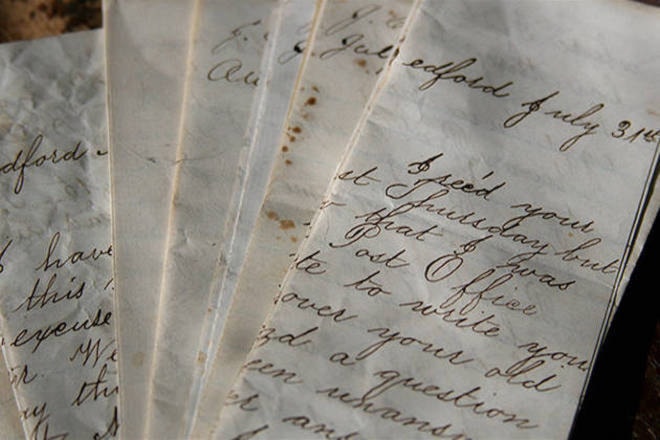 dford
I have
this
excuse
r. We
y th
J.
Au
J.
Jul
edford July 31st
I rec'd your
st Thursday but
that I was
Post Office
te to write you
over your old
d a question
een unansw